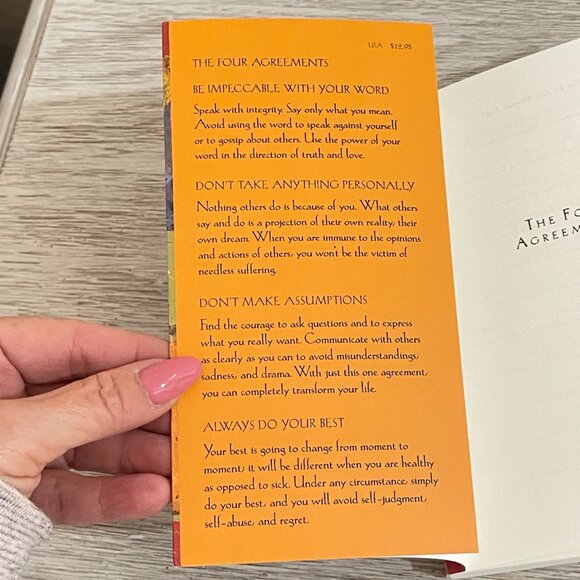 USA $12.95
THE FOUR AGREEMENTS
BE IMPECCABLE WITH YOUR WORD
Speak with integrity. Say only what you mean.
Avoid using the word to speak against yourself
or to gossip about others. Use the power of your
word in the direction of truth and love.
DON'T TAKE ANYTHING PERSONALLY
Nothing others do is because of you. What others
say and do is a projection of their own reality, their
own dream. When you are immune to the opinions
and actions of others, you won't be the victim of
needless suffering.
DON'T MAKE ASSUMPTIONS
Find the courage to ask questions and to express
what you really want. Communicate with others
as clearly as you can to avoid misunderstandings,
sadness, and drama. With just this one agreement,
you can completely transform your life.
ALWAYS DO YOUR BEST
Your best is going to change from moment to
moment; it will be different when you are healthy
as opposed to sick. Under any circumstance, simply
do your best, and you will avoid self-judgment,
self-abuse, and regret.
THE FO
AGREEM